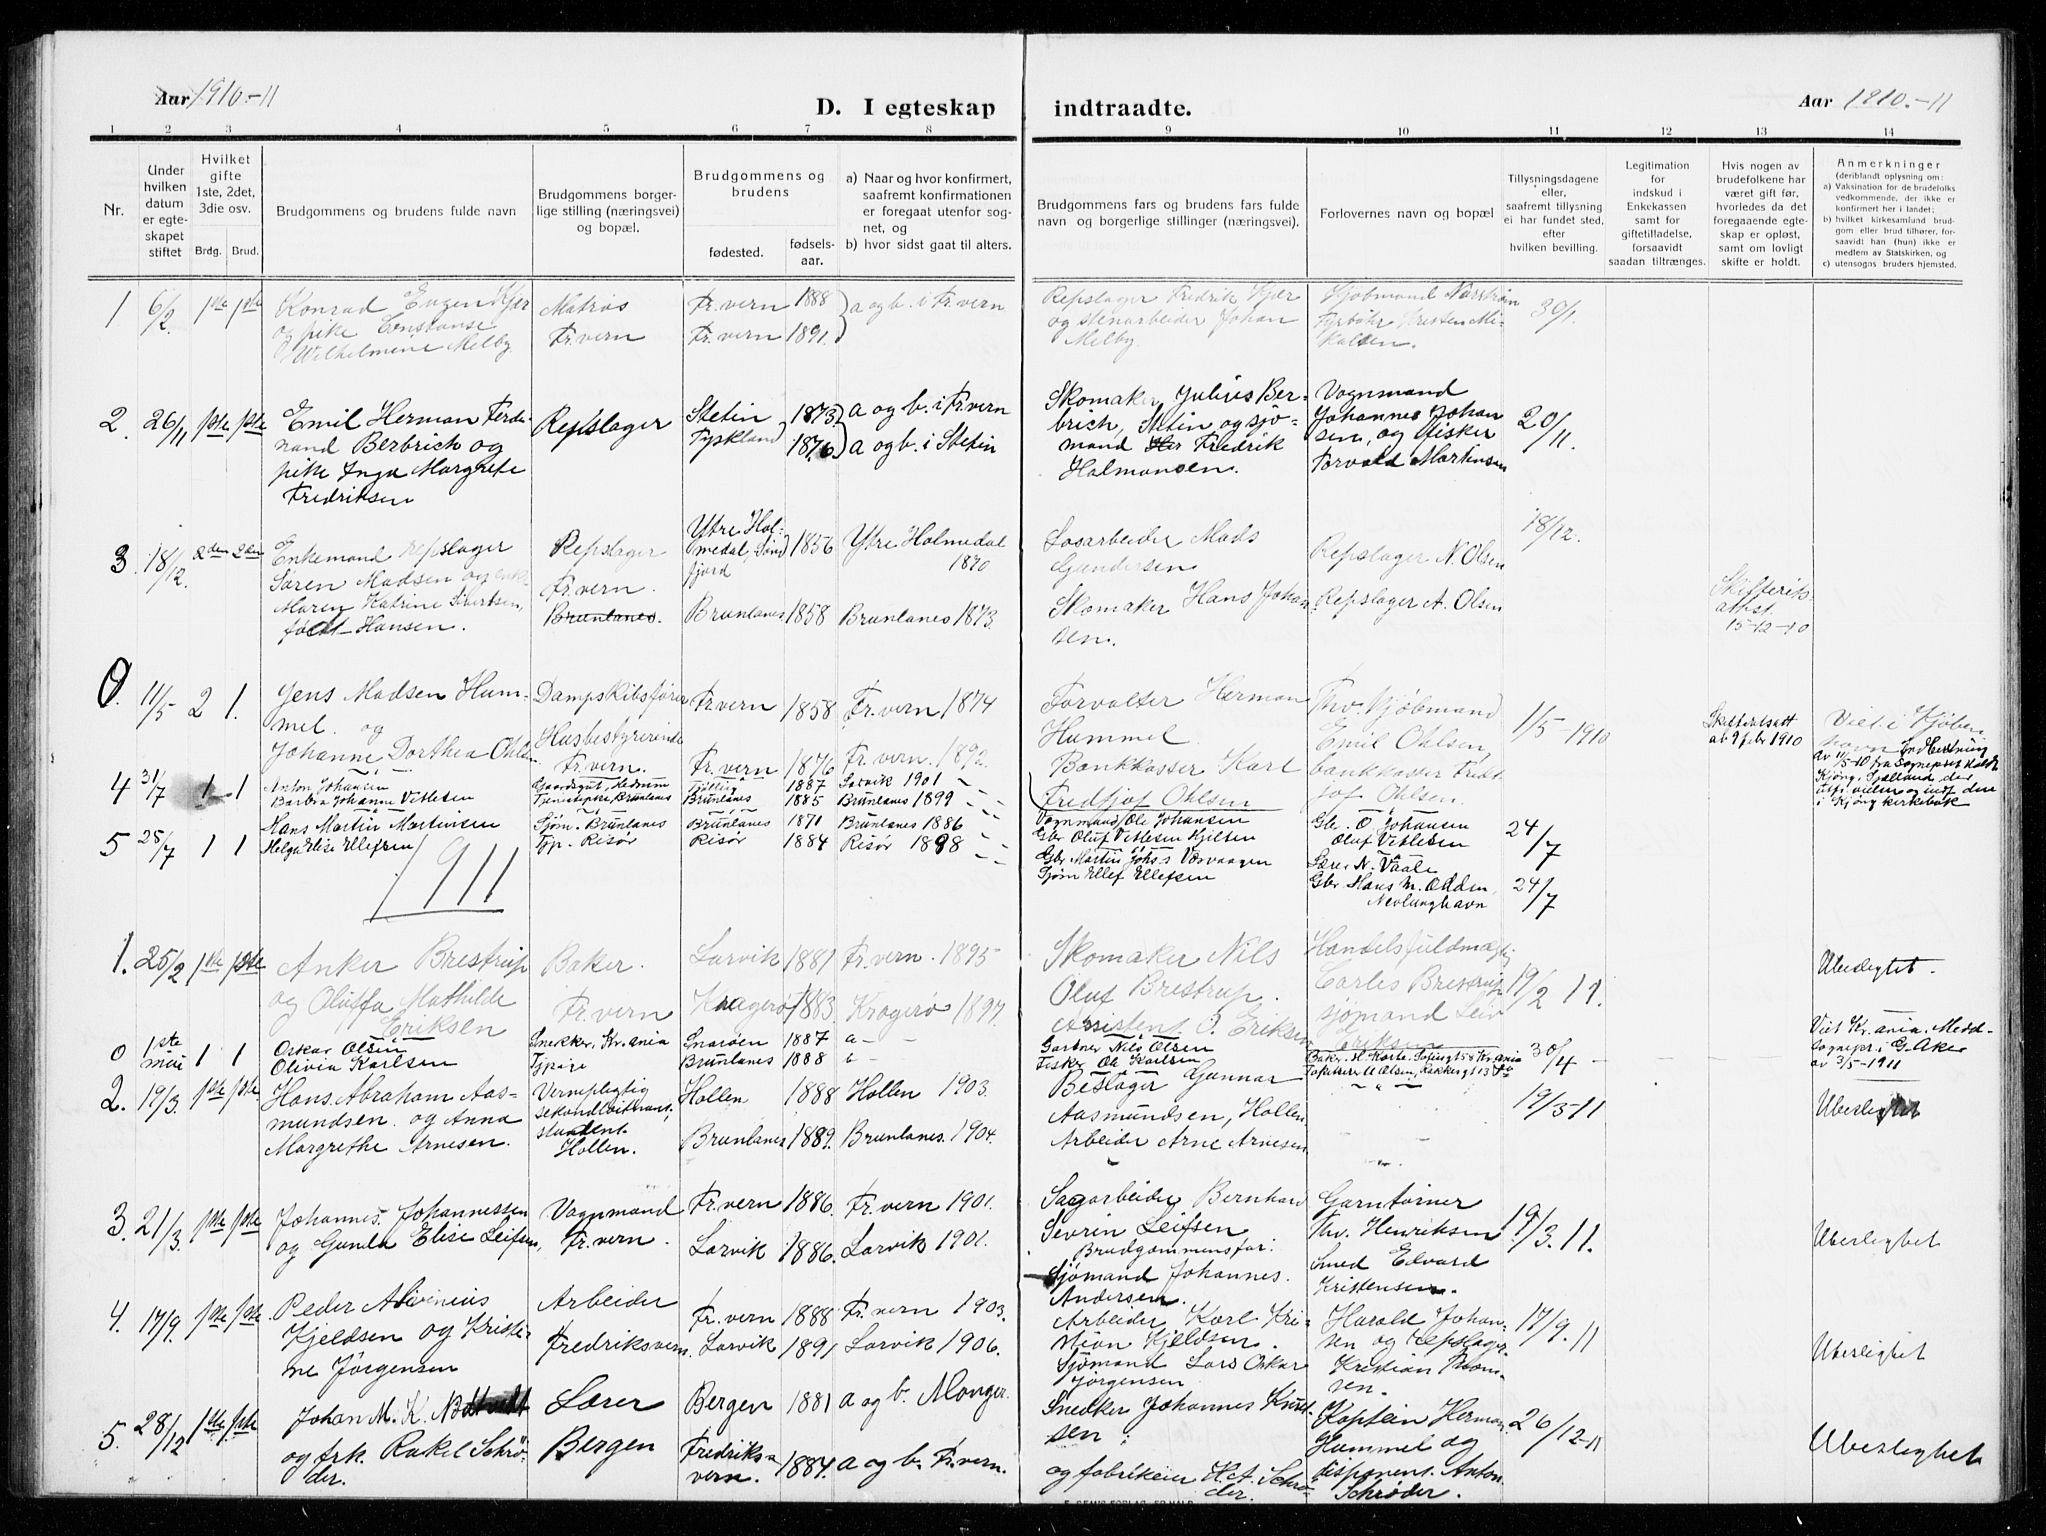 Aar 1910-11
D. I egteskap indtraadte.
Aar 1910.-11
1 2 3 4 5 6 7 8 9 10 11 12 13 14
Nr.
Under hvilken datum er egteskapet stiftet
Hvilket gifte 1ste, 2det, 3die osv.
Brdg. Brud.
Brudgommens og brudens fulde navn
Brudgommens borgerlige stilling (næringsvei) og bopæl.
Brudgommens og brudens
fødested.
fødselsaar.
a) Naar og hvor konfirmert, saafremt konfirmationen er foregaat utenfor sognet, og
b) hvor sidst gaat til alters.
Brudgommens fars og brudens fars fulde navn og borgerlige stillinger (næringsvei).
Forlovernes navn og bopæl
Tillysningsdagene eller, saafremt tillysning ei har fundet sted, efter hvilken bevilling.
Legitimation for indskud i Enkekassen samt for giftetilladelse, forsaavidt saadan tiltrænges.
Hvis nogen av brudefolkene har været gift før, hvorledes da det foregaaende egteskap er opløst, samt om lovligt skifte er holdt.
Anmerkninger
(deriblandt oplysning om:
a) Vaksination for de brudefolks vedkommende, der ikke er konfirmert her i landet;
b) hvilket kirkesamfund brudgom eller brud tilhører, forsaavidt han (hun) ikke er medlem av Statskirken, og
c) utensogns bruders hjemsted.
1 6/2 1ste 1ste
Konrad Eugen Kjær
og pike Constanse
Wilhelmine Melby
Matros
Fr.vern
Fr.vern 1888
Fr.vern 1891.
a og b. i Fr.vern
Repslager Fredrik Kjær
og stenarbeider Johan
Melby
Kjøbmand Narström
Fyrbøter Kristen Mi-
kalsen.
30/1.
2. 26/11 1ste 1ste
Emil Herman Ferdi-
nand Berbrich og
pike Inga Margrete
Fredriksen
Repslager
Stetin 1873
Tyskland 1876
a og b. i Fr.vern
a og b. i Stetin
Skomaker Julius Ber-
brich, Stetin og sjø-
mand Fredrik
Halmonsen.
Vognmand
Johannes Johan
sen, og fisker
Torvald Martinsen
20/11.
3. 18/12. 2den 2den
Enkemand repslager
Søren Madsen og enke
Maren Katrine Sivertsen,
født Hansen.
Repslager
Fr.vern.
Brunlanes.
Ytre Hol-
medal, Sønd
fjord 1856
Brunlanes 1858
Ytre Holmedal
1870
Brunlanes 1873.
Losarbeider Mads
Gundersen
Skomaker Hans Johan
sen.
Repslager N. Olsen
Repslager A. Olsen
18/12.
Skifteriks.
athst.
15-12-10
0. 11/5 2 1.
Jens Madsen Hum-
mel. og
Johanne Dorthea Ohlsen
Dampskibsfører
Husbestyrerinde
Fr.vern.
Fr.vern 1858
Fr.vern 1876
Fr.vern 1874
Fr.vern. 1892.
Forvalter Herman
Hummel
Bankkasser Karl
Fredtjof Ohlsen
Thv. Kjøbmand
Emil Ohlsen,
bankkasser Fredt
jof Ohlsen.
1/5-1910
Skifteretsatt
av 9 febr 1910
Viet i Kjøben
havn Indberetning
av 11/5-10 fra Sogneprest
4 31/7 1 1
Anton Johansen
Barbra Johanne Vitlesen
Gaardsgut, Hedrum
Brunlanes
1887
Brunlanes 1885
Larvik 1901
Brunlanes 1899
Vognmand Ole Johansen
Gbr Oluf Vitlesen Hjelten
Gbr. O. Johansen
Oluf Vitlesen
24/7
5 25/7 1 1
Hans Martin Martinsen
Helga Elise Ellefsen
Sjøm. Brunlanes
Tjp. Risør
Brunlanes 1871
Risør 1884
Brunlanes 1886
Risør 1898
Gbr. Martin Johs.s Værvaagen
Sjøm Ellef Ellefsen
Lærer N. Vaale
Gbr. Hans M. Odden,
Nevlunghavn
24/7
1911
1. 25/2 1ste 1ste
Anker Brestrup
og Oluffa Mathilde
Eriksen
Baker.
Fr.vern
Larvik 1881
Kragerø 1883
Fr.vern. 1895
Kragerø 1897.
Skomaker Nils
Oluf Brestrup.
Assistent O. Eriksen
Handelsfuldmægtig
Carles Brestrup
sjømand Leiv
Eriksen
19/2 11.
Uberligtet.
0 1ste mai 1 1
Oskar Olsen
Olivia Karlsen
Snekker. Kr.ania
Tjpige
Snarøen 1887
Brunlanes 1888
a - -
Gartner Nils Olsen
Fisker Ole Karlsen
30/4
Viet Kr.ania. Medd-
Sognepr. i G. Aker
av 3/5-1911
2. 19/3. 1ste 1ste
Hans Abraham Aas-
mundsen. og Anna
Margrethe Arnesen.
Vernepligtig
sekondløitnant,
student.
Hollen.
Hollen 1888
Brunlanes 1889.
Hollen 1903.
Brunlanes. 1904.
Beslager Gunnar
Aasmundsen, Hollen.
Arbeider Arne Arnesen.
19/3-11
Uberligtet
3. 21/3. 1ste 1ste
Johannes. Johannessen
og Gunda Elise Leifsen,
Vognmand
Fr.vern.
Fr.vern 1886.
Larvik 1886.
Fr.vern 1901.
Larvik 1901.
Sagarbeider Bernhard
Sevrin Leifsen
Brudgommensfar:
Sjømand Johannes.
Andersen.
Garntørner
Thv. Henriksen
Smed Edvard
Kristensen.
19/3.11.
Uberligtet
4. 17/9. 1ste 1ste
Peder Alvinius
Kjeldsen og Kristi-
ne Jørgensen
Arbeider
Fredriksvern.
Fr.vern 1888
Larvik 1891
Fr.vern 1903.
Larvik 1906.
Arbeider Karl Kri-
stian Kjeldsen.
Sjømand Lars Oskar
Jørgensen
Harald Johan-
sen og repslager
Kristian
sen.
17/9.11
Uberligtet
5. 28/12 1ste 1ste
Johan M. K.
og frk. Rakel Schrø-
der.
Lærer
Bergen
Bergen 1881
Fredriks-
vern. 1884.
a og b. Manger.
a og b. Fr.vern.
Snedker Johannes Knut-
sen;
og fabrikeier H.A. Schrø-
der.
Kaptein Herman
Hummel og
disponent. Anton
Schrøder.
26/12-11
Uberligtet